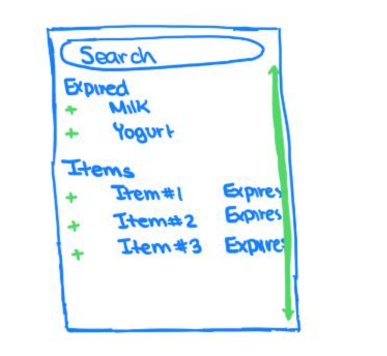 Search
Expired
+ Milk
+ Yogurt
Items
+ Item#1 Expires
+ Item#2 Expires
+ Item#3 Expires